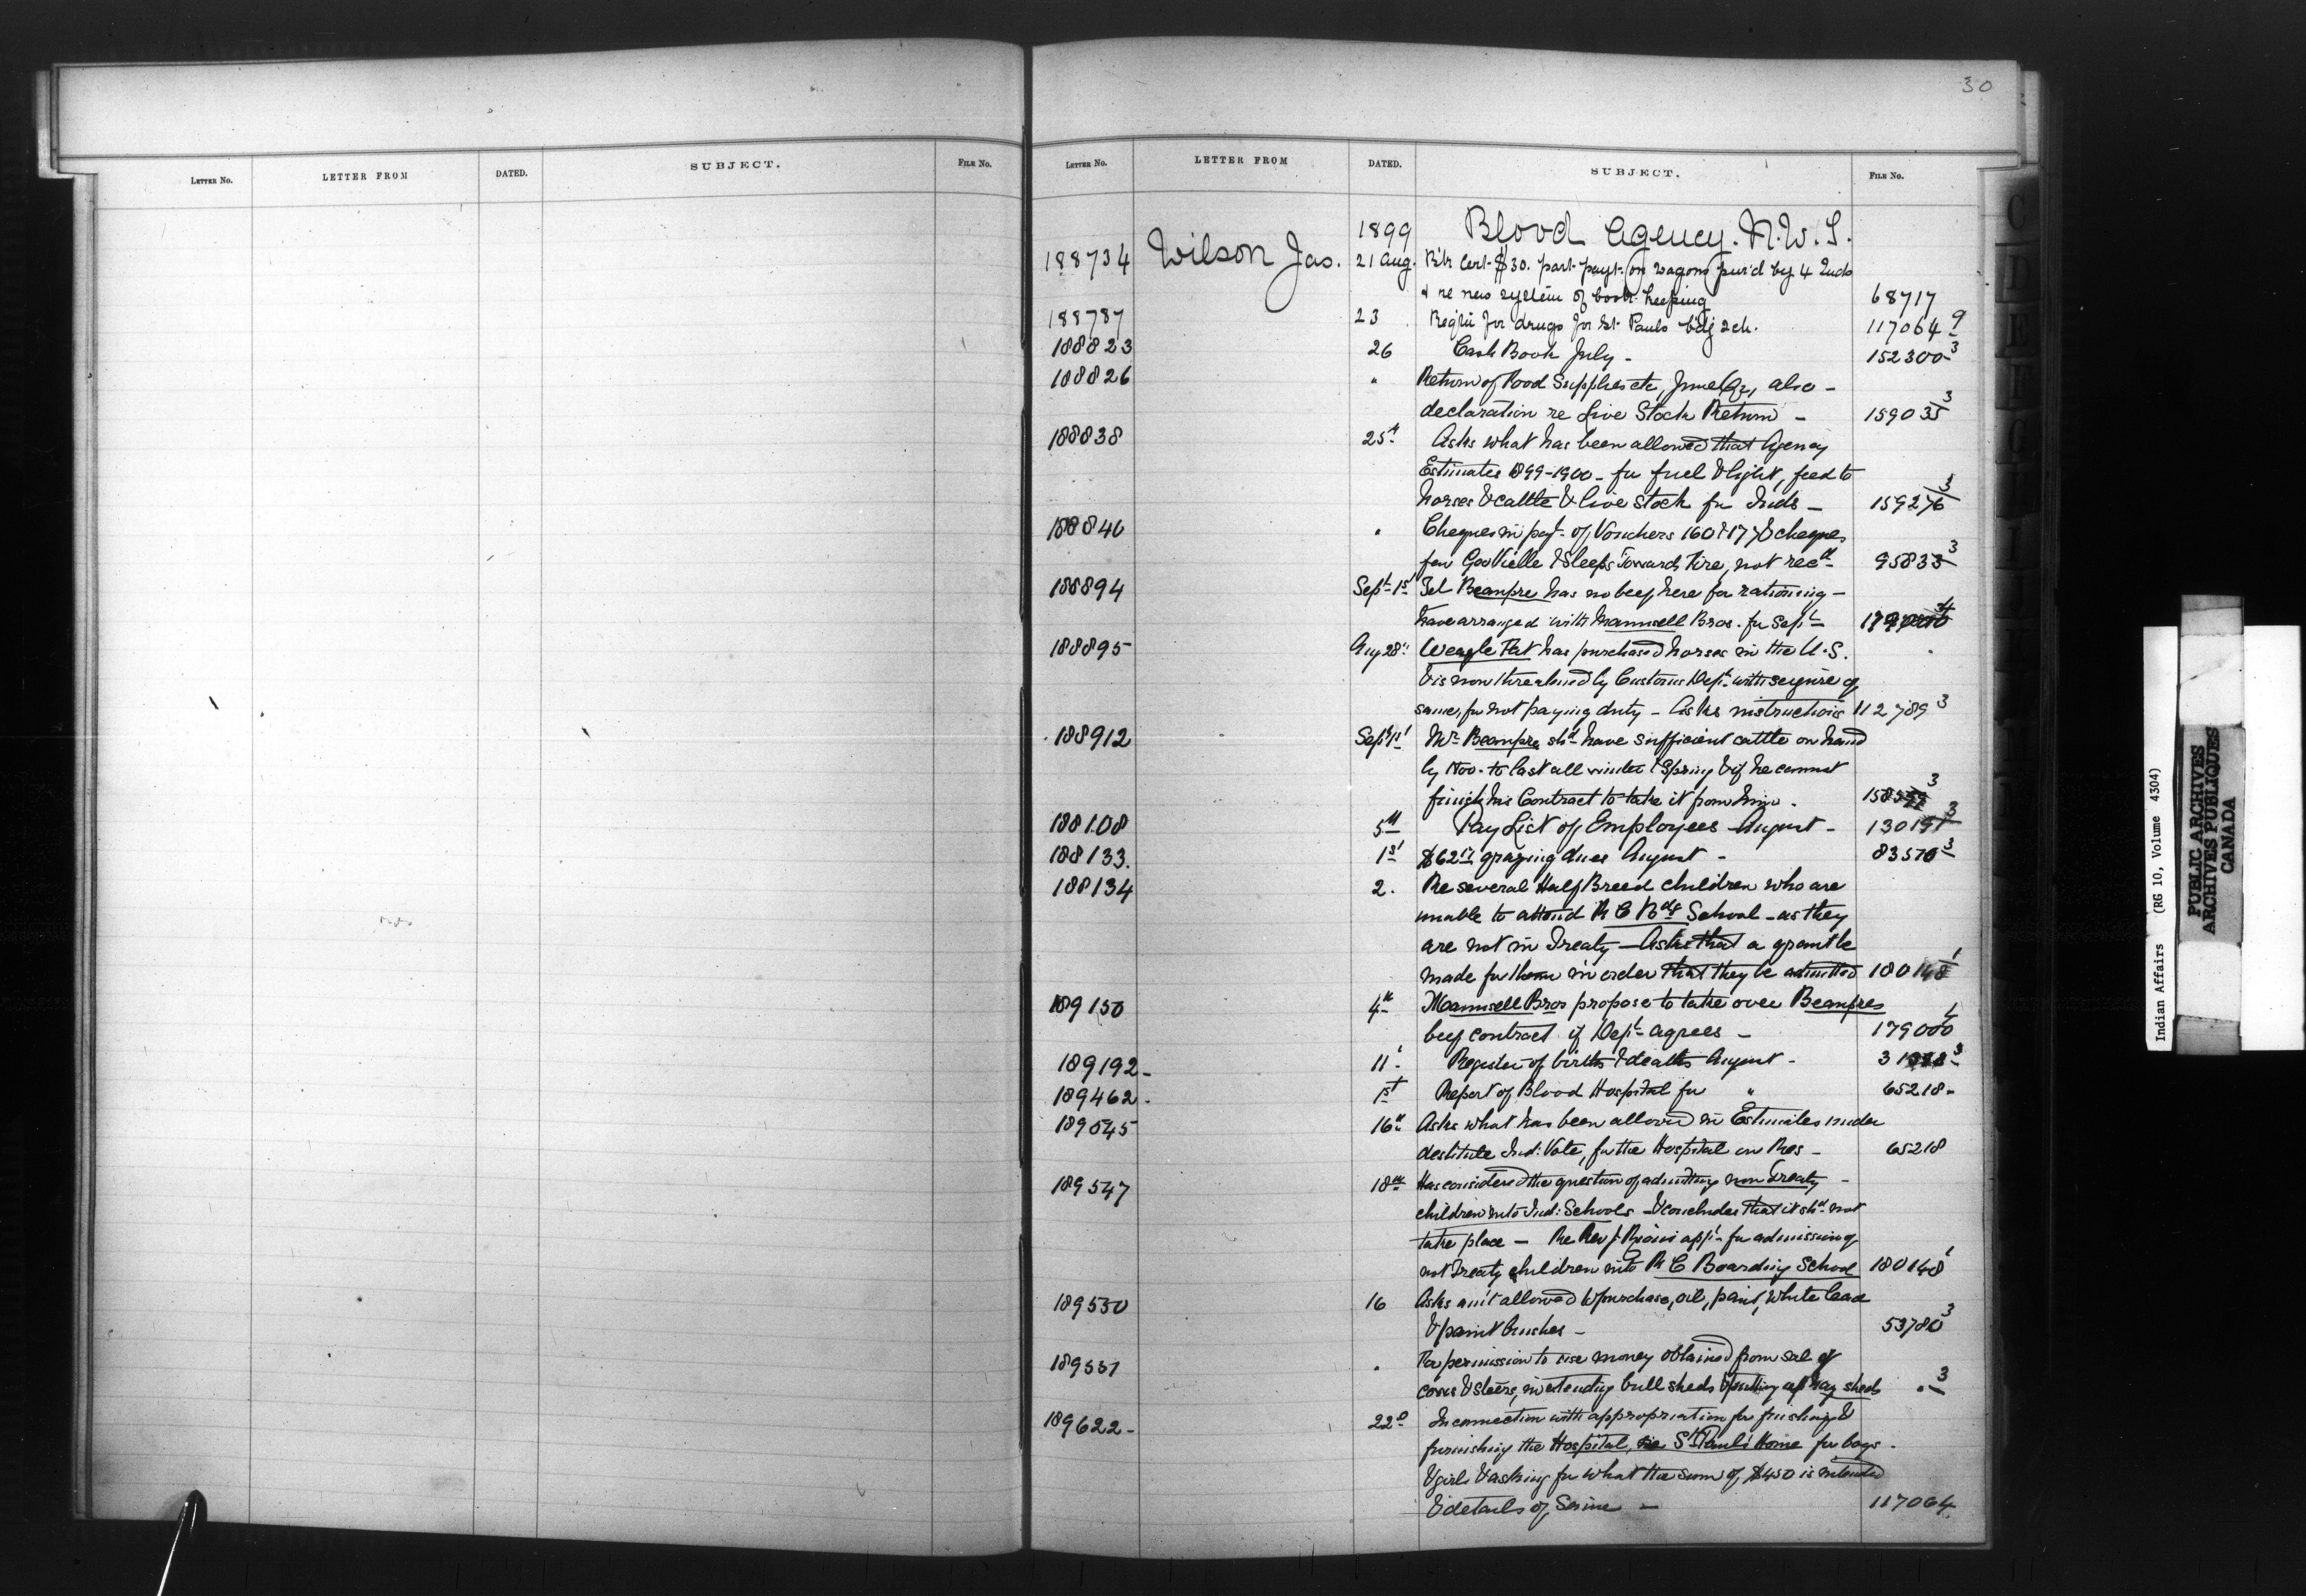 30
LETTER NO. LETTER FROM DATED. SUBJECT. FILE NO.
LETTER NO. LETTER FROM DATED. SUBJECT. FILE NO.
1899 Blood Agency. N.W.T.
188734 Wilson Jas. 21 Aug. Rtr Cert. $30. part payt. on wagons pur'd by 4 Inds
& re new system of book-keeping 68717
188787 23 Reqtn for drugs for St. Pauls bdg sch. 117064 9
188823 26 Cash Book July - 152300 3
188826 " Return of Food Supplies etc, June Qr, also -
declaration re Live Stock Return - 159035 3
188838 25th Asks what has been allowed that Agency
Estimates 1899-1900 - for fuel & light, feed to
horses & cattle & live stock for Inds - 159276 3
188840 " Cheques in payt. of Vouchers 160 & 177 & cheques
for Veille & Sleeps Toward Fire, not recd 95833 3
188894 Sept 1st Tel Beaupre has no beef here for rationing -
have arranged with Maunsell Bros. for Sept 4
188895 Aug 28th Weazle Fat has purchased horses in the U.S.
& is now threatened by Customs Dept with seizure of
same, for not paying duty - Asks instructions 112789 3
188912 Sept 1st Mr Beaupre shd have sufficient cattle on hand
by Nov. to last all winter & Spring & if he cannot
finish his Contract to take it from him. 3
188108 5th Pay List of Employees August - 130191 3
188133. 1st $62 grazing dues August - 83570 3
188134 2. Re several Half Breed children who are
unable to attend R C Bdg School - as they
are not in Treaty - Asks that a grant be
made for them in order that they be admitted 180148 1
189150 4th Maunsell Bros propose to take over Beaupres
beef contract if Dept agrees - 179000 4
189192 - 11. Register of births & deaths August - 3
189462 - 1st Report of Blood Hospital for " 65218 -
189545 16th Asks what has been allowed in Estimates under
destitute Ind: Vote, for the Hospital on Res - 65218
189547 18th Has considered the question of admitting non Treaty -
children into Ind: Schools - & concludes that it shd not
take place - Re Revd Riou's appl. for admission of
not Treaty children into R C Boarding School 180148 1
189550 16 Asks am't allowed to purchase, oil, paint, white lead
& paint brushes - 53780 3
189551 " For permission to use money obtained from sale of
cows & steers, in extending bull sheds & putting up hay sheds " 3
189622 - 22d In connection with appropriation for finishing &
furnishing the Hospital, re St Paul's Home for boys -
& girls & asking for what the sum of $450 is intended
& details of Same - 117064
Indian Affairs (RG 10, Volume 4304)
PUBLIC ARCHIVES
ARCHIVES PUBLIQUES
CANADA